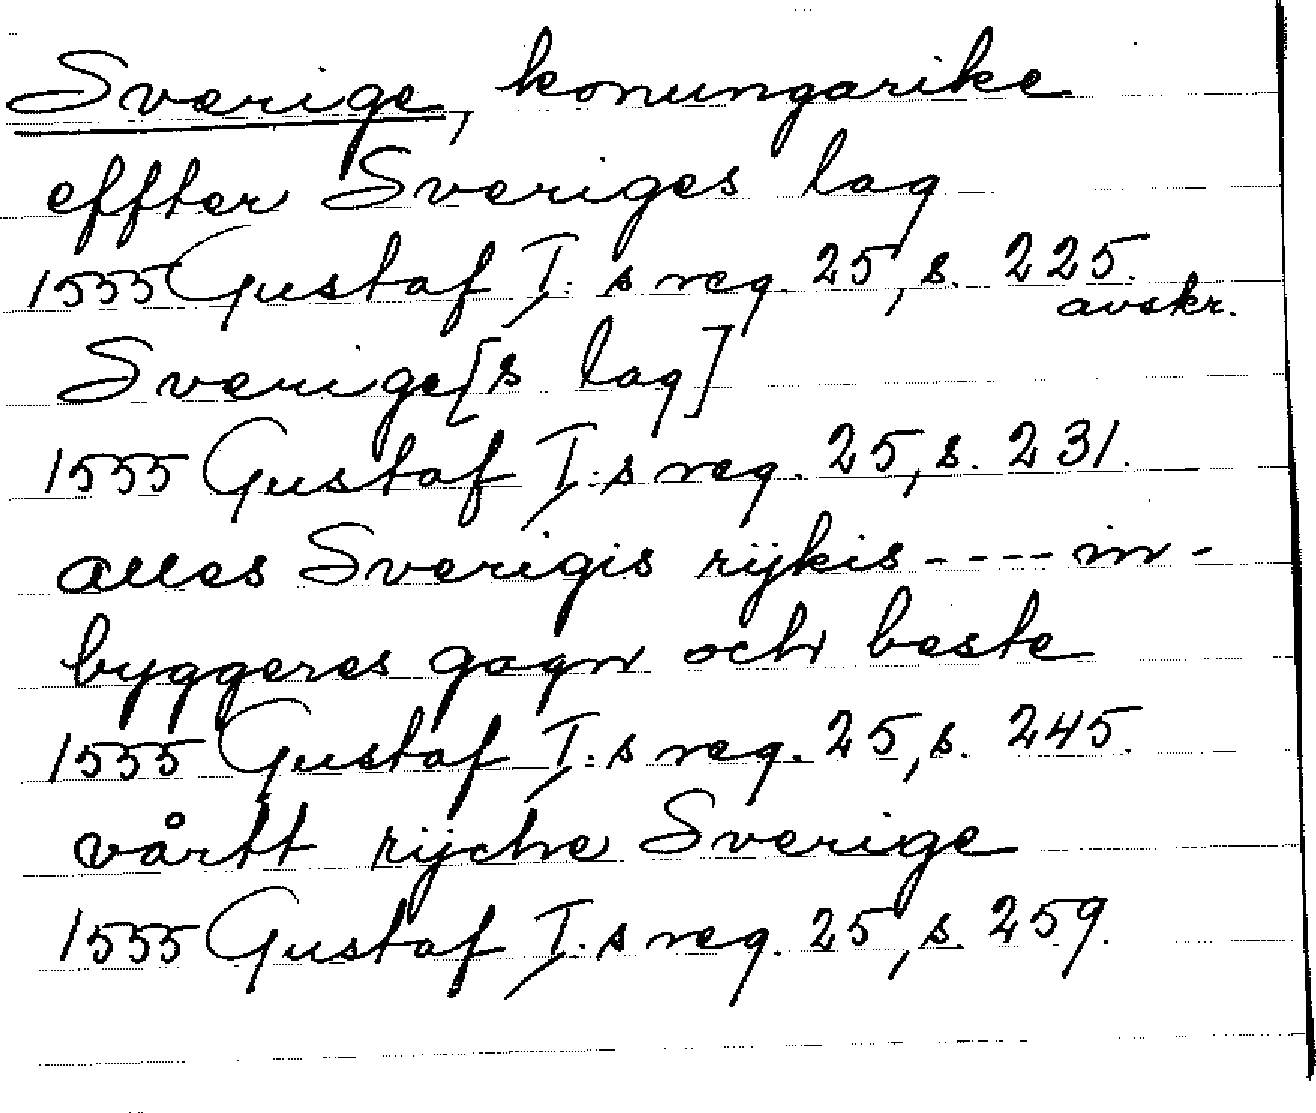 Sverige, konungarike
effter Sveriges lag
1555 Gustaf I:s reg. 25, s. 225.
avskr.
Sverige[s lag]
1555 Gustaf I:s reg. 25, s. 231.
alles Sverigis rijkis - - - - in-
byggeres gagn och beste
1555 Gustaf I:s reg. 25, s. 245.
vårtt rijche Sverige
1555 Gustaf I:s reg. 25, s. 259.